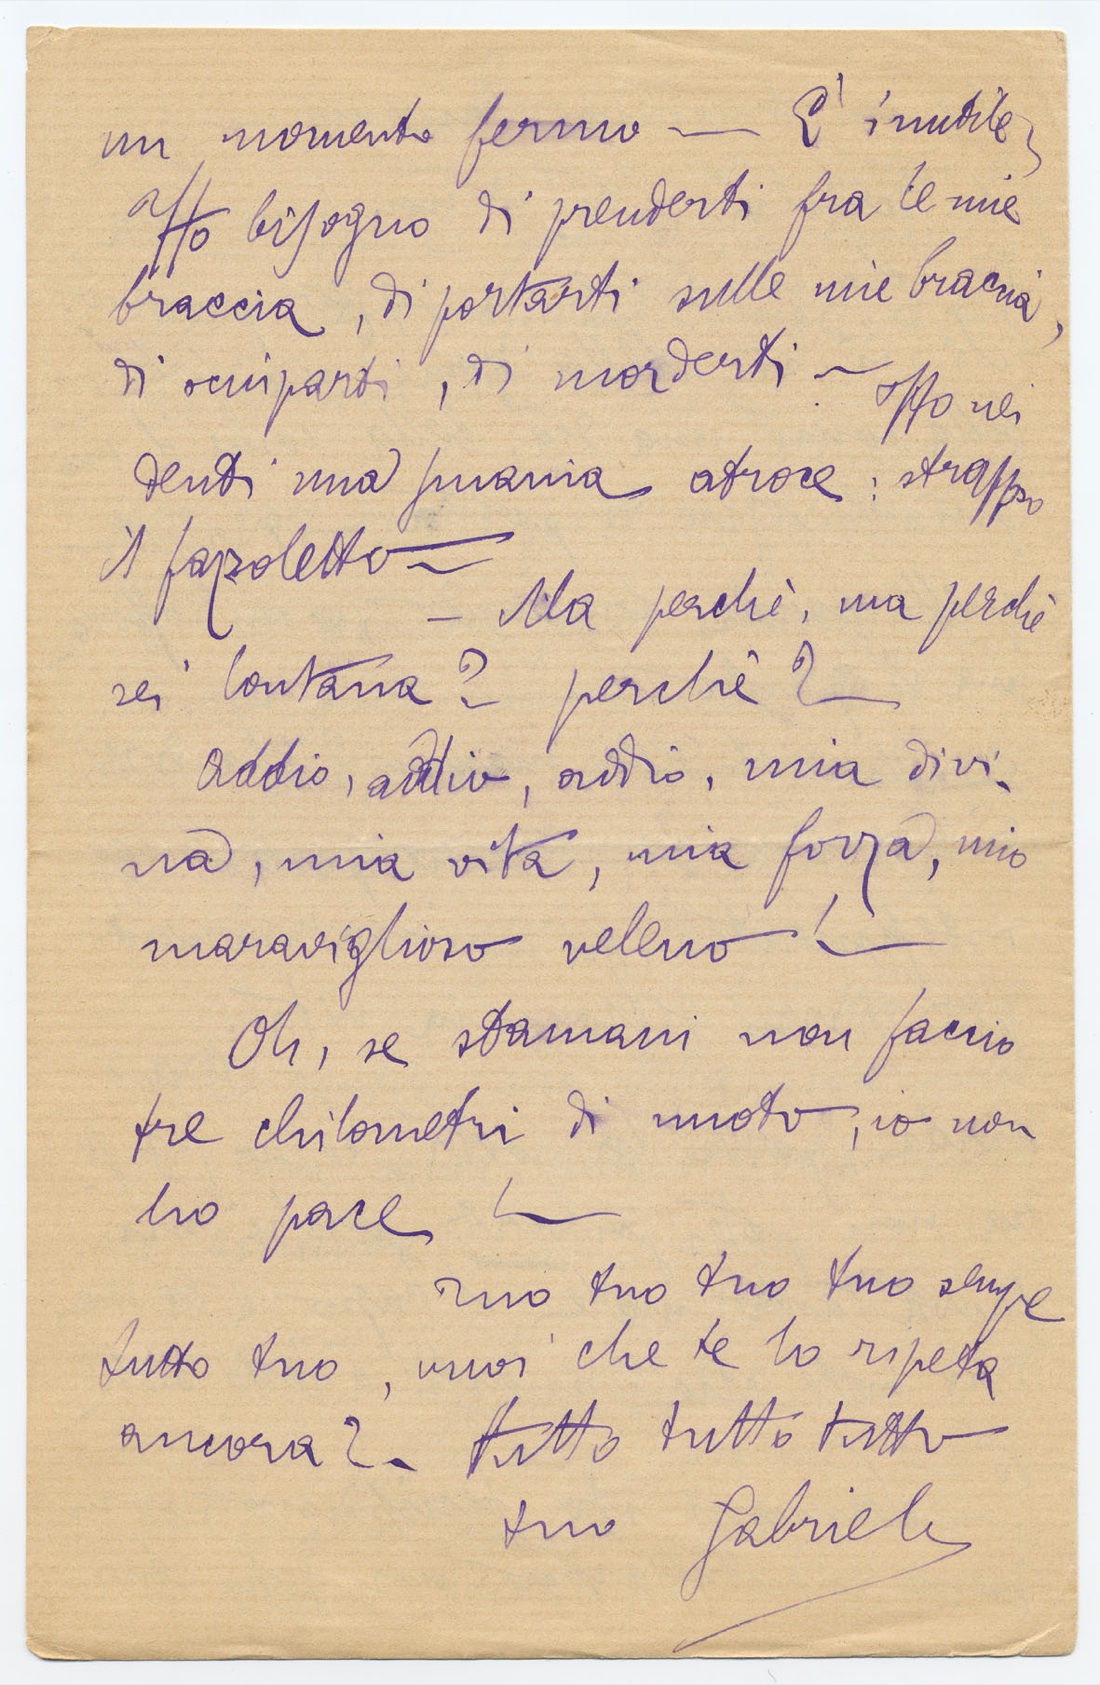 un momento fermo — È inutile,
Ho bisogno di prenderti fra le mie
braccia, di portarti sulle mie braccia,
di sciuparti, di morderti — Ho nei
denti una smania atroce: strappo
il fazzoletto —
— Ma perchè, ma perchè
sei lontana? perchè? —
Addio, addio, addio, mia divi-
na, mia vita, mia forza, mio
maraviglioso veleno! —
Oh, se stamani non faccio
tre chilometri di nuoto, io non
ho pace! —
Tuo tuo tuo tuo sempre
tutto tuo, vuoi che te lo ripeta
ancora? - tutto tutto tutto
tuo Gabriele